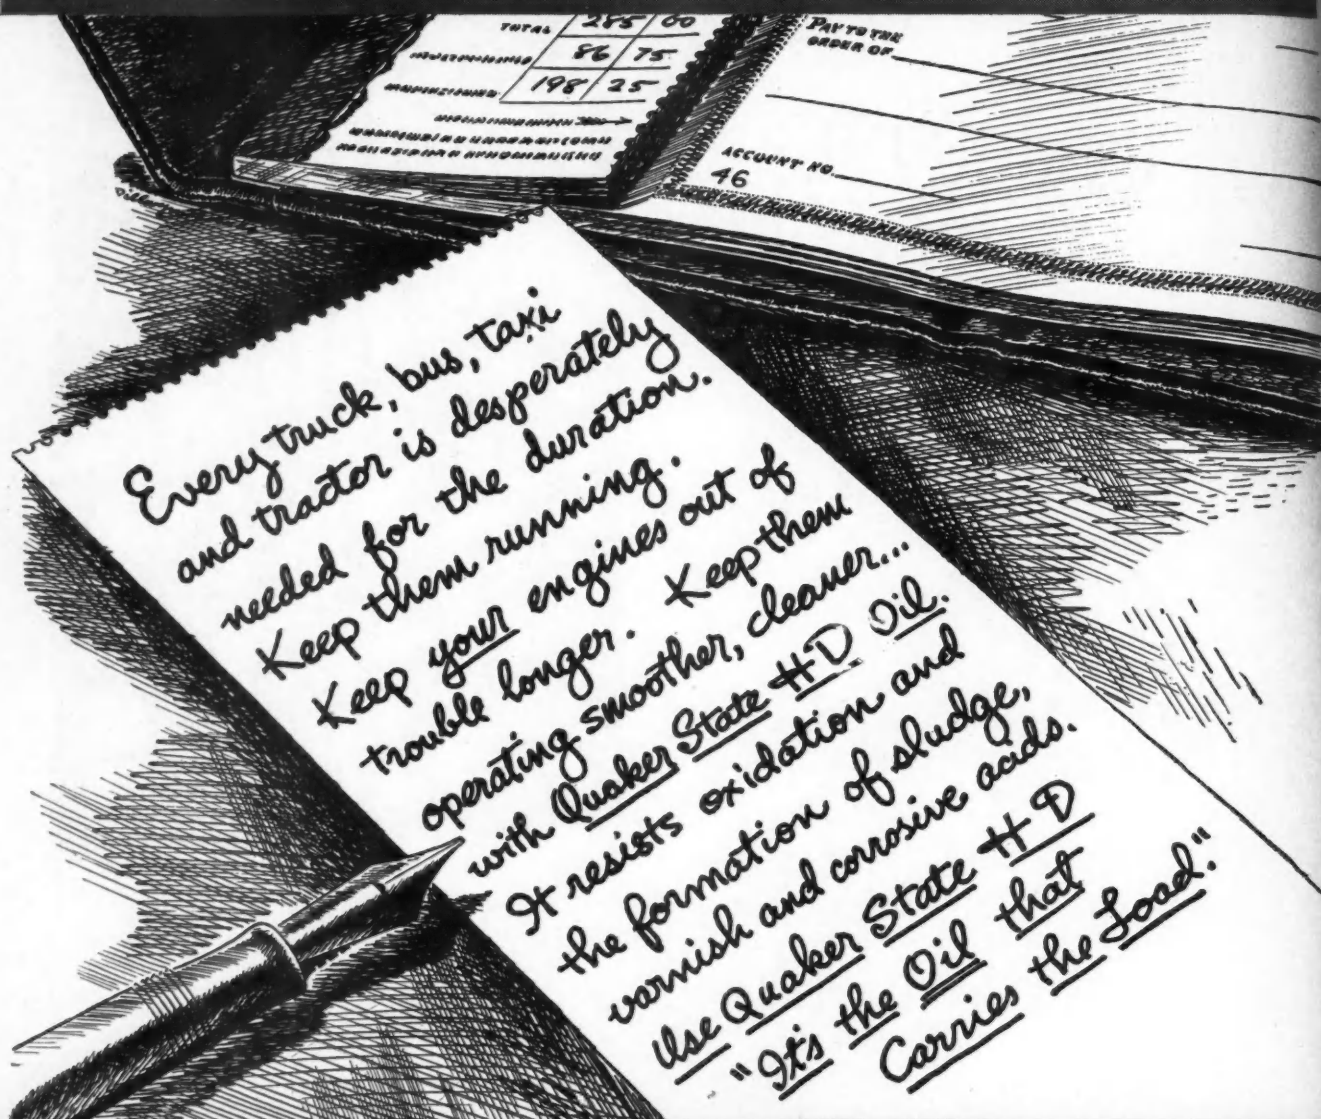 TOTAL 285 60
86 75
198 25
PAY TO THE
ORDER OF
ACCOUNT NO.
46
Every truck, bus, taxi
and tractor is desperately
needed for the duration.
Keep them running.
Keep your engines out of
trouble longer. Keep them
operating smoother, cleaner...
with Quaker State HD Oil.
It resists oxidation and
the formation of sludge,
varnish and corrosive acids.
Use Quaker State HD
"It's the Oil that
Carries the Load."